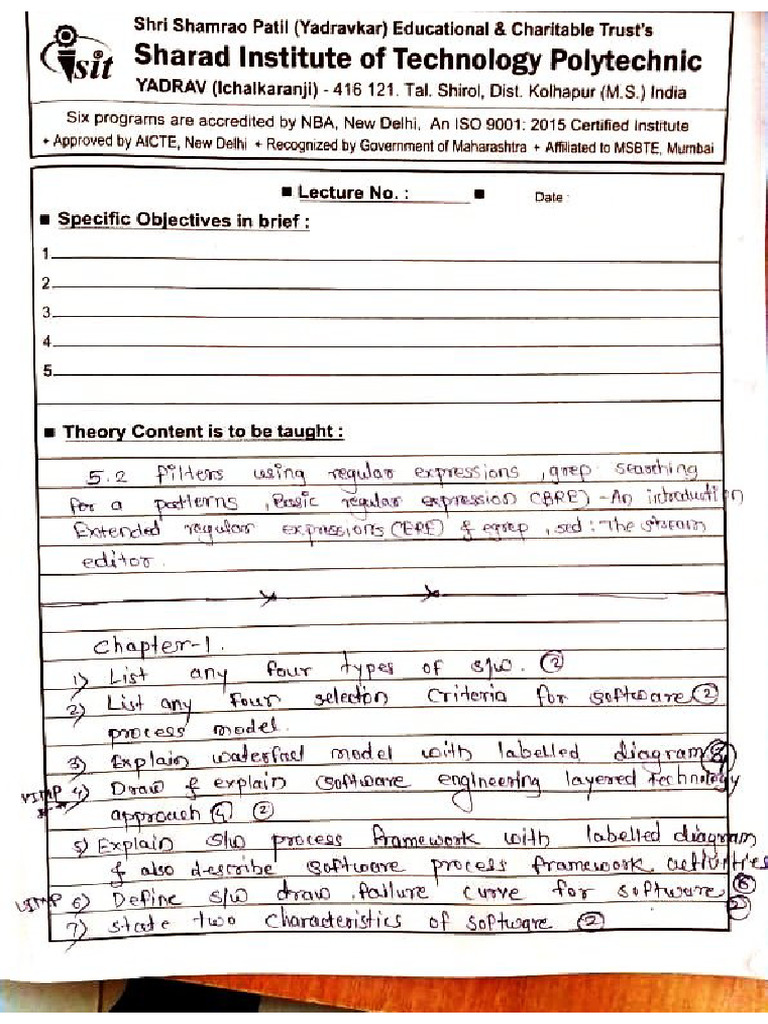 Shri Shamrao Patil (Yadravkar) Educational & Charitable Trust's
sit
Sharad Institute of Technology Polytechnic
YADRAV (Ichalkaranji) - 416 121. Tal. Shirol, Dist. Kolhapur (M.S.) India
Six programs are accredited by NBA, New Delhi, An ISO 9001: 2015 Certified Institute
+ Approved by AICTE, New Delhi + Recognized by Government of Maharashtra + Affiliated to MSBTE, Mumbai
■ Lecture No. : ■ Date :
■ Specific Objectives in brief :
1.
2.
3.
4.
5.
■ Theory Content is to be taught :
5.2 Filters using regular expressions, grep searching
for a patterns, Basic regular expression (BRE) - An introduction
Extended regular expressions (ERE) & egrep, sed : The stream
editor.
Chapter-1.
1) List any four types of s/w. ②
2) List any Four selection Criteria for software ②
process model.
3) Explain waterfact model with labelled diagram
VIMP 4) Draw & explain software engineering layered technology
approach ④ ②
5) Explain s/w process framework with labelled diagram
& also describe software process framework activities
VIMP 6) Define s/w draw failure curve for software
7) State two characteristics of software ②